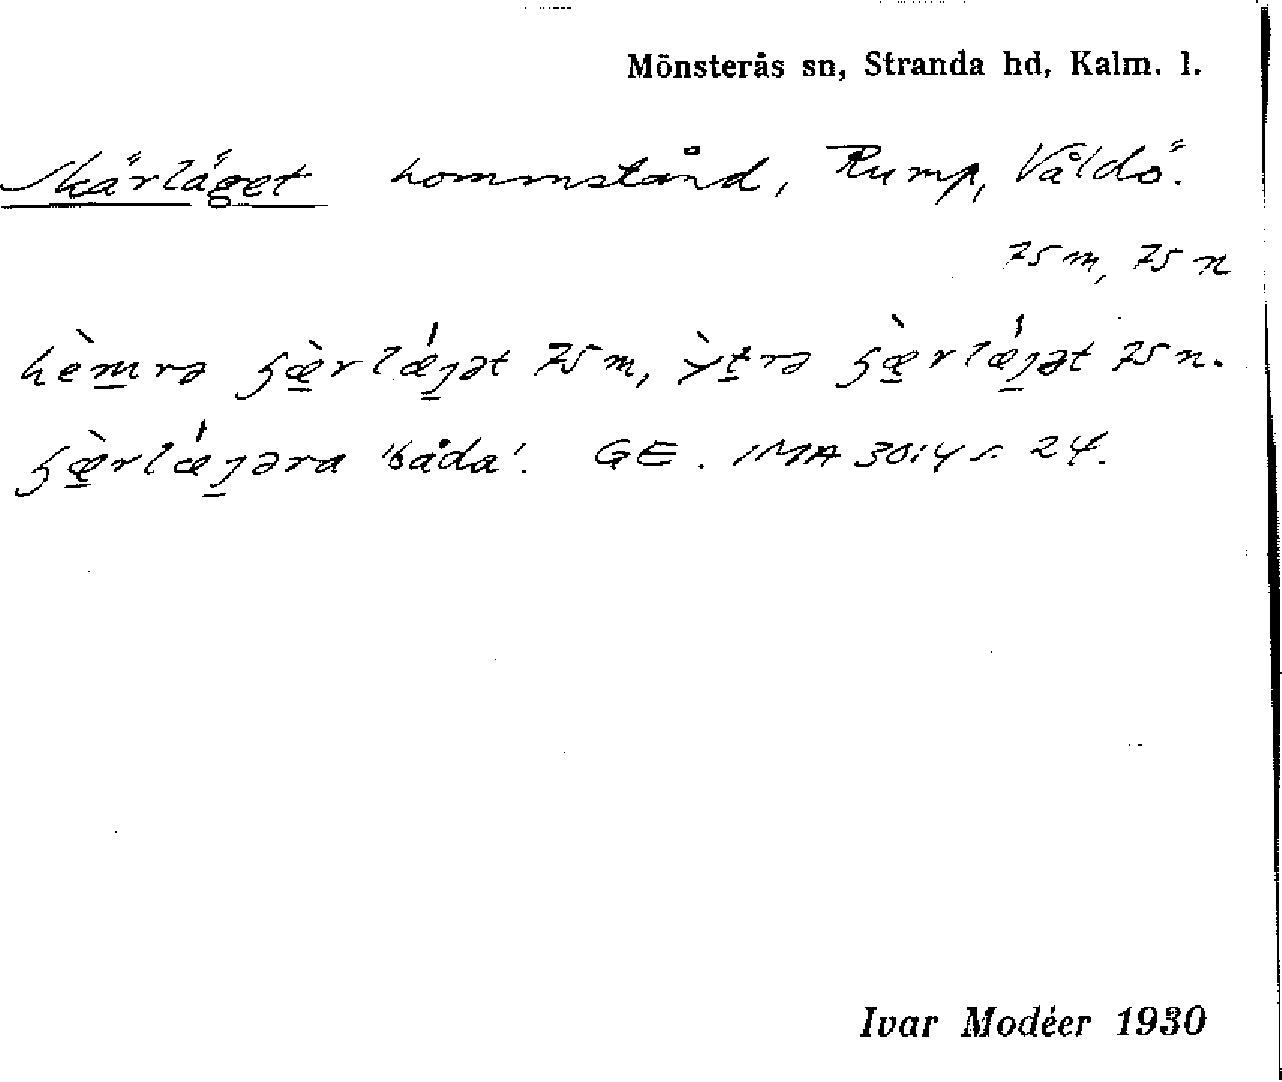 Mönsterås sn, Stranda hd, Kalm. l.
Skärläget hommstånd, Rump, Våldö.
75 m, 75 n
hèm̲rə ʂæ̲̀rlǽ̲ȷət 75 m, ỳt̲rə ʂæ̲̀rlǽȷ̲ət 75 n.
ʂæ̲̀rlǽȷ̲əra 'båda'. GE. IMA 3014 s. 24.
Ivar Modéer 1930